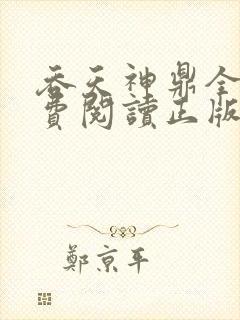 吞天神鼎全
費閱讀正版
鄭京平